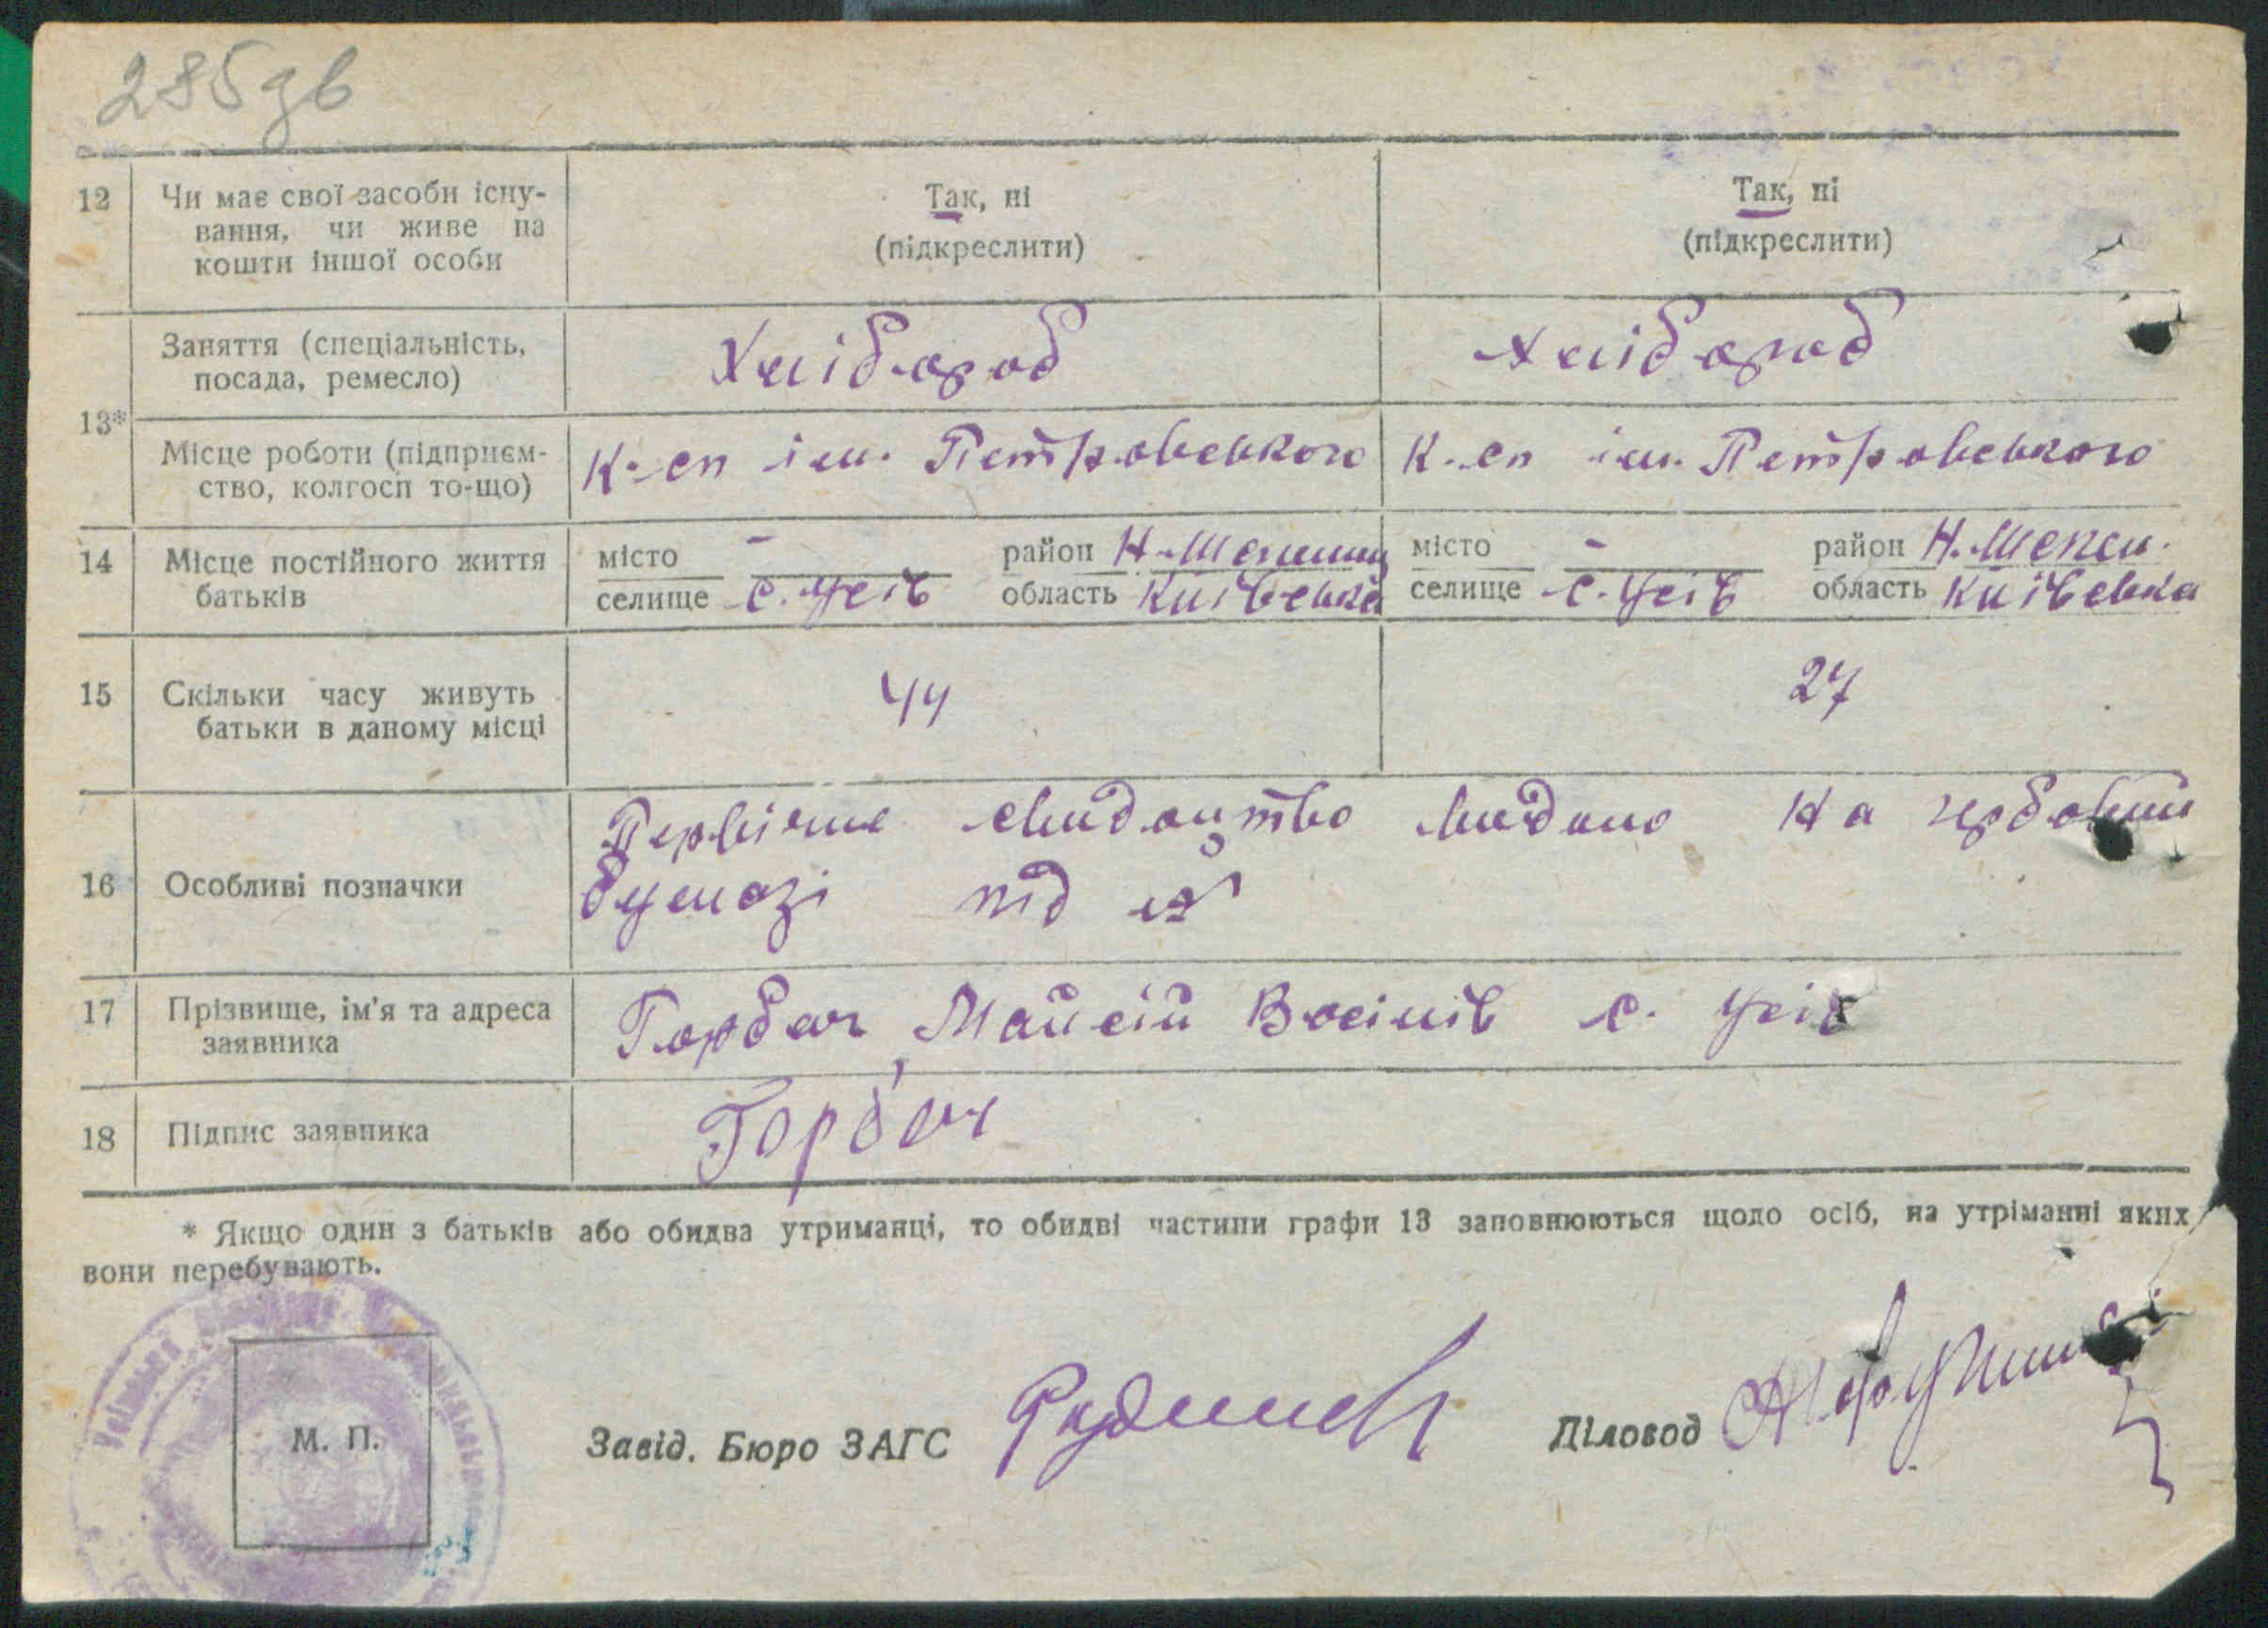 285 зв
12 Чи має свої засоби існу-
вання, чи живе на
кошти іншої особи
Так, ні
(підкреслити)
Так, ні
(підкреслити)
13*
Заняття (спеціальність,
посада, ремесло)
Хлібороб
Хлібороб
Місце роботи (підприєм-
ство, колгосп то-що)
К-сп ім. Петровського
К-сп ім. Петровського
14 Місце постійного життя
батьків
місто -
район
селище с. Усів
область Київська
місто -
район
селище с. Усів
область Київська
15 Скільки часу живуть
батьки в даному місці
44
27
16 Особливі позначки
Первічне свидоцтво видано на гербовій
бумазі під №
17 Прізвище, ім'я та адреса
заявника
Горбач, Мойсій с. Усів
18 Підпис заявника
Горбач
* Якщо один з батьків або обидва утриманці, то обидві частини графи 13 заповнюються щодо осіб, на утріманні яких
вони перебувають.
М. П.
Завід. Бюро ЗАГС
Діловод